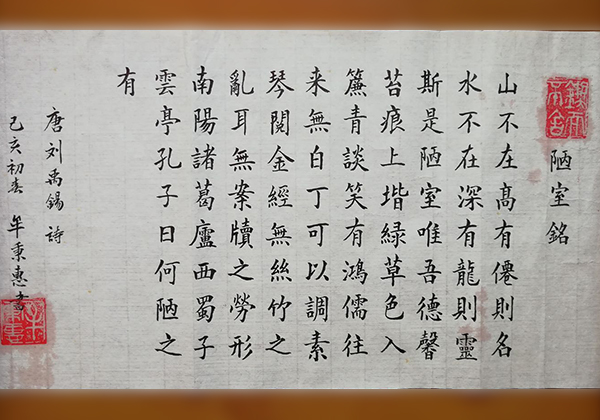 陋室銘
山不在高有僊則名
水不在深有龍則靈
斯是陋室唯吾德馨
苔痕上堦緑草色入
簾青談笑有鴻儒往
来無白丁可以調素
琴閱金經無絲竹之
亂耳無案牘之勞形
南陽諸葛廬西蜀子
雲亭孔子曰何陋之
有
唐刘禹錫詩
己亥初春 牟秉惠書